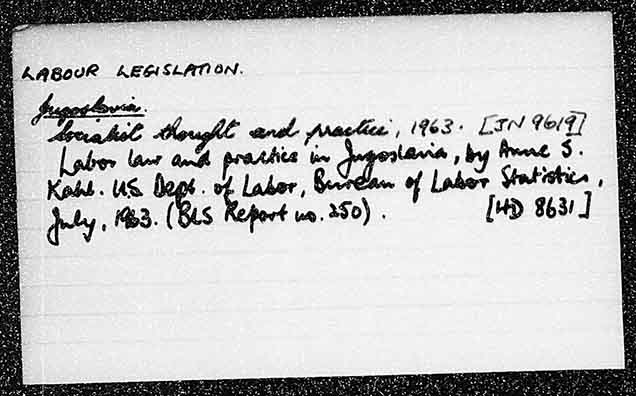 LABOUR LEGISLATION.
Jugoslavia.
Socialist thought and practice, 1963. [JN 9619]
Labor law and practice in Jugoslavia, by Anne S.
Kahl. U.S. Dept. of Labor, Bureau of Labor Statistics,
July, 1963. (BLS Report no. 250). [HD 8631]